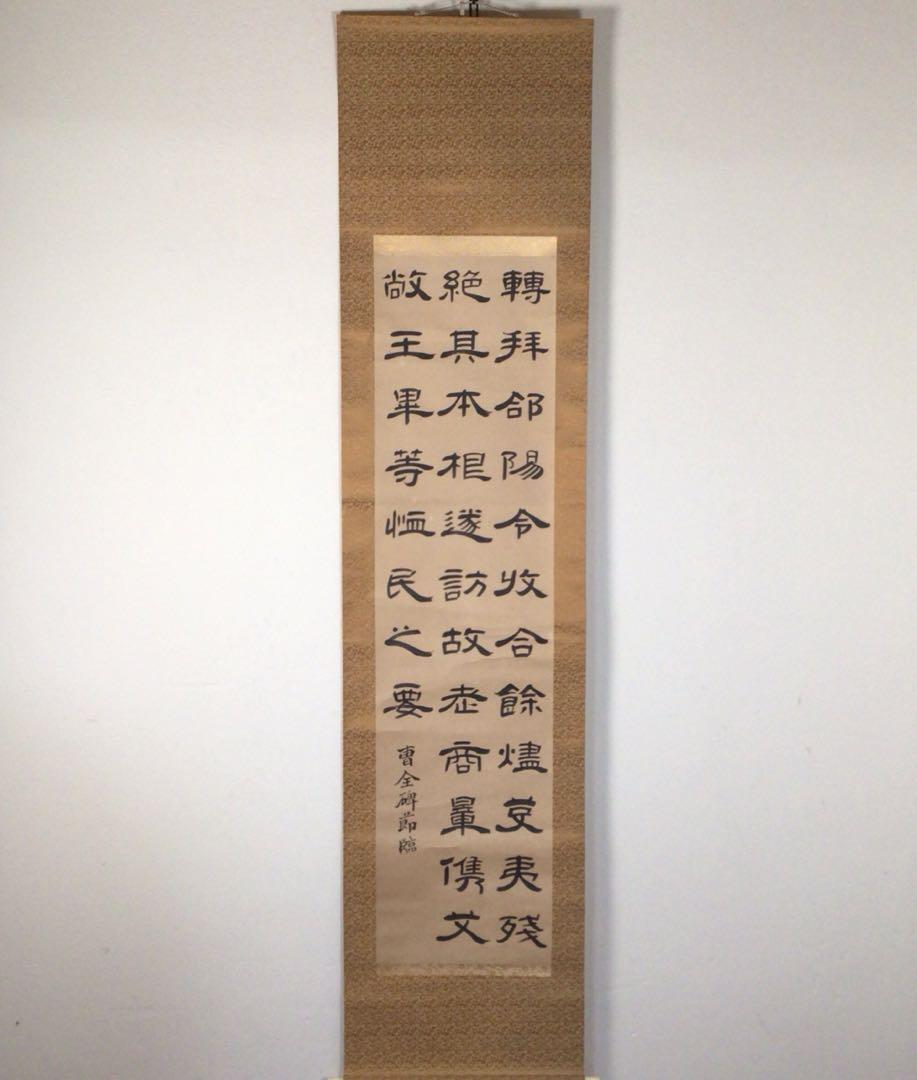 轉拜郃陽令收合餘燼芟夷殘
絕其本根遂訪故老商量儁艾
敞王畢等恤民之要
曹全碑節臨